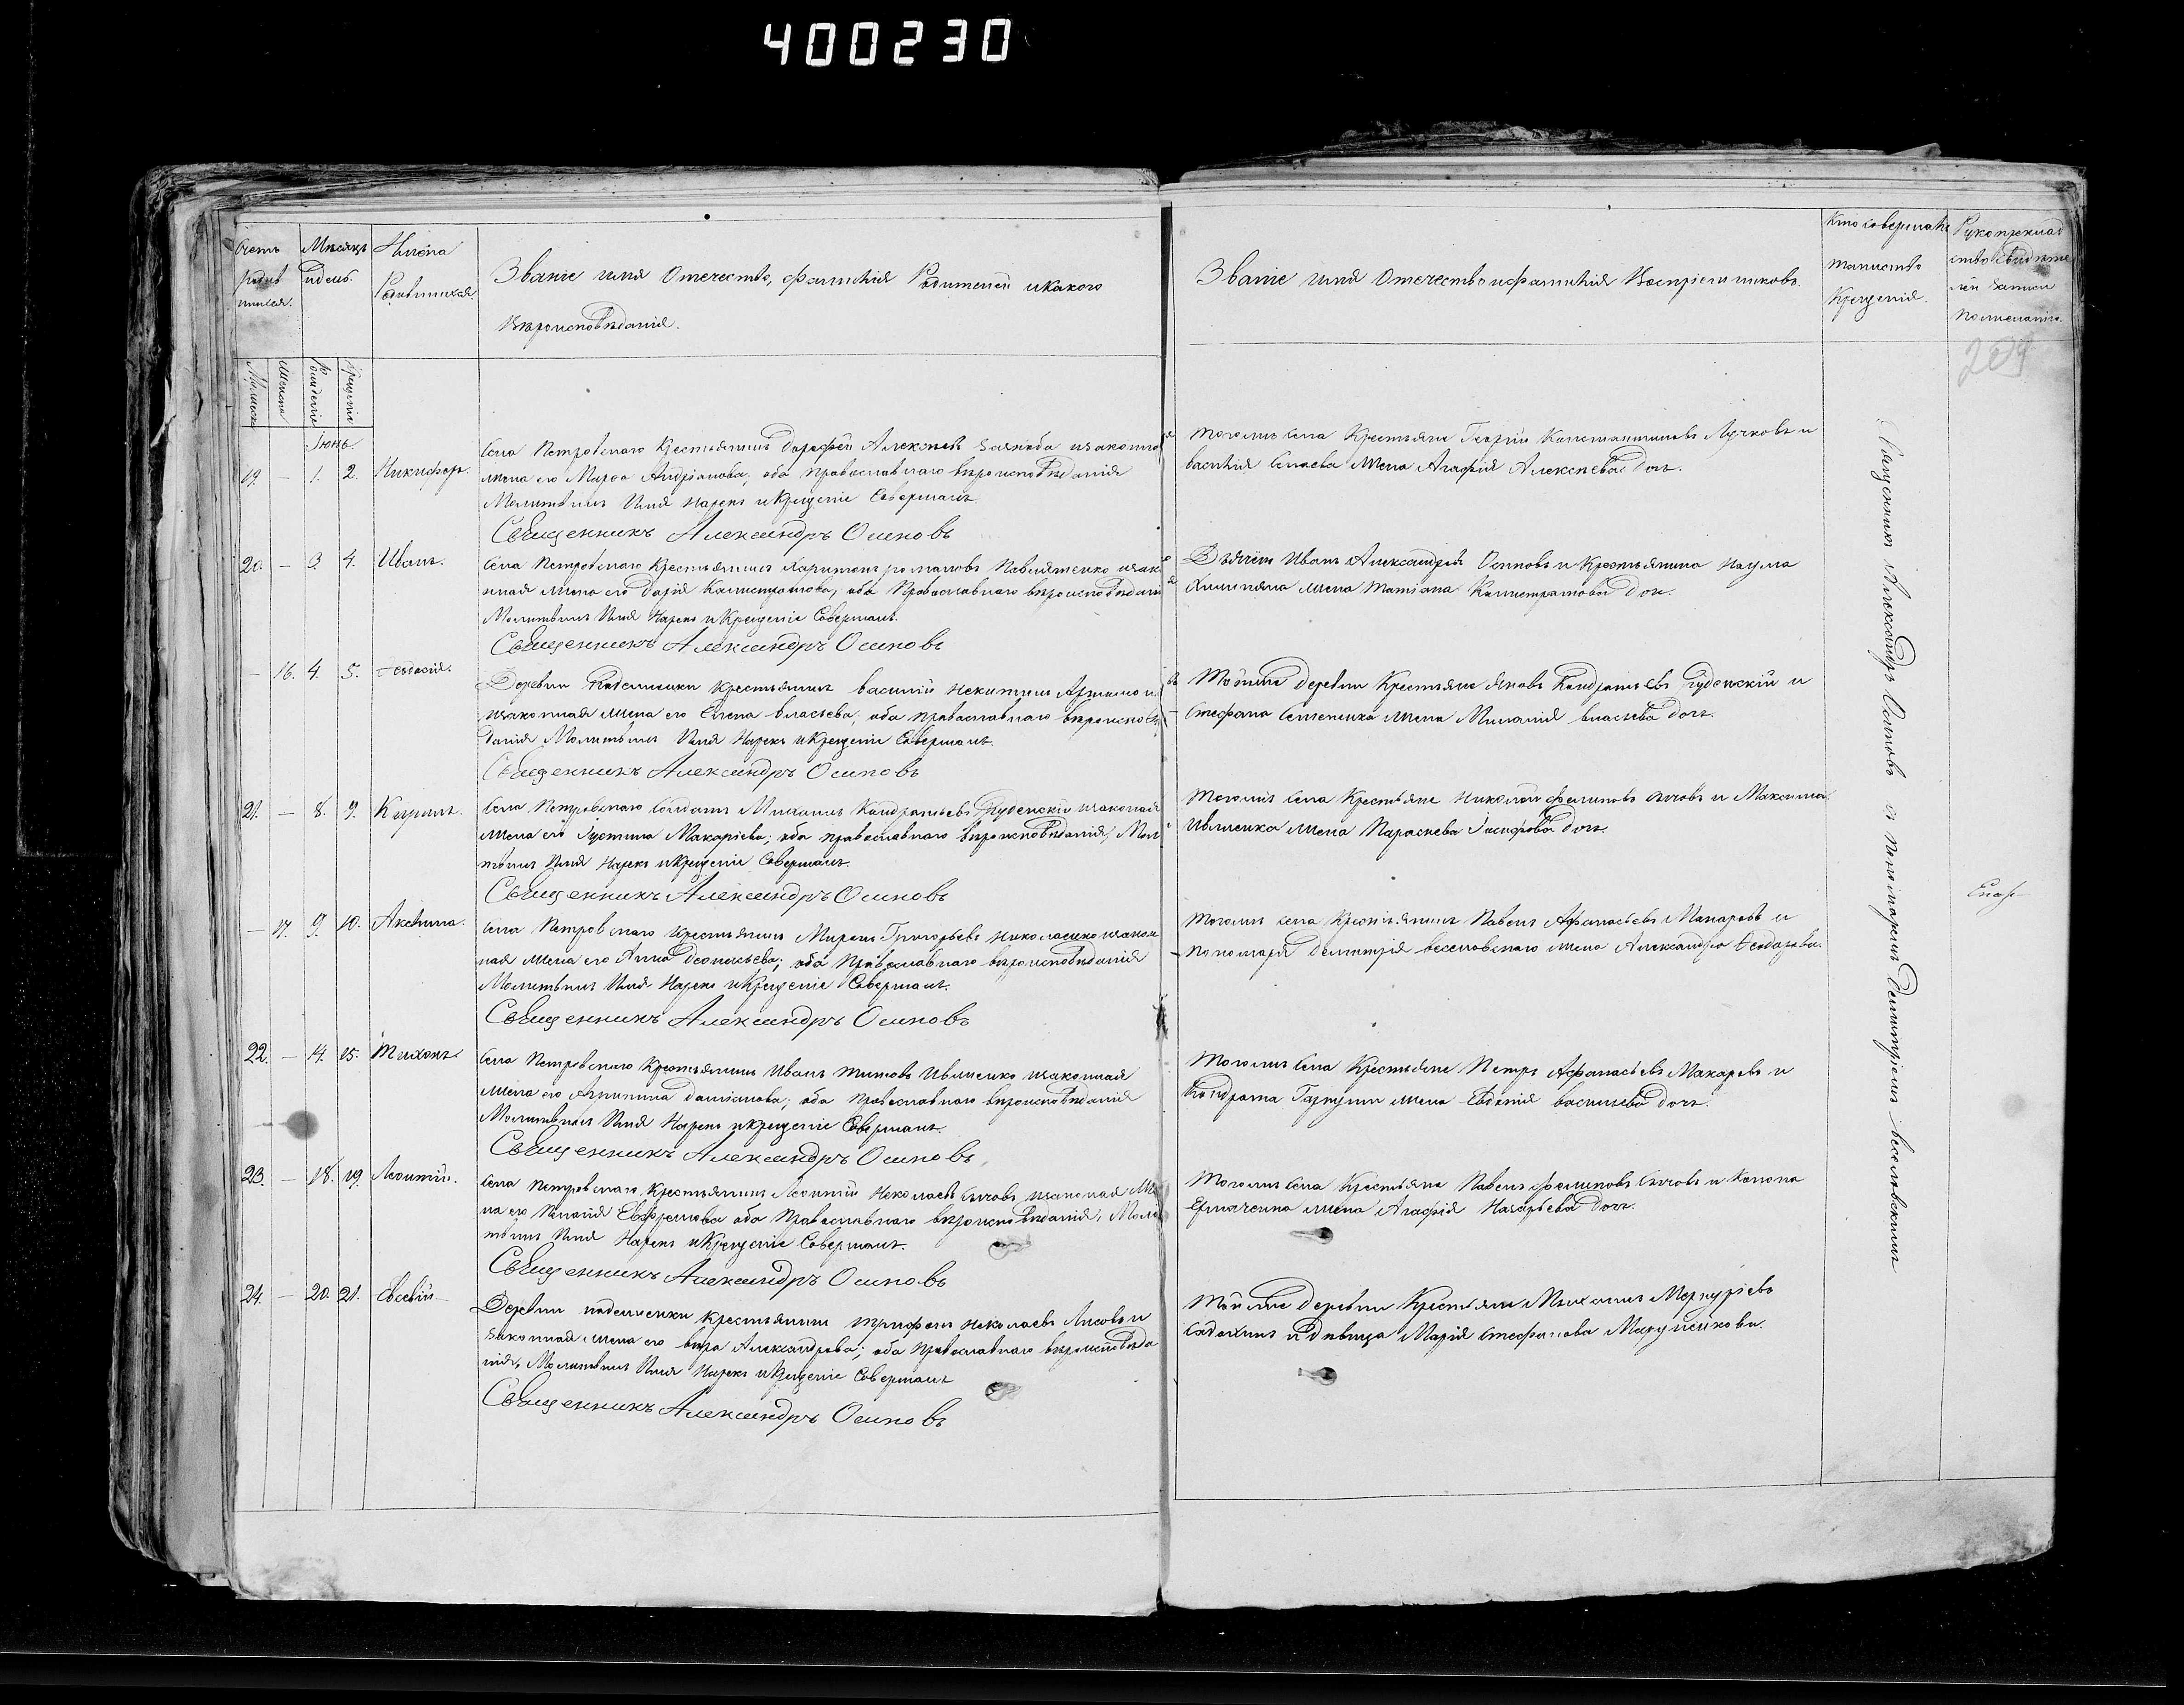 400230
Счетъ родившихся.
Мѣсяцъ и день.
Имена Родившихся.
Званіе имя Отечество, фамилія Родителей и какого
Вѣроисповѣданія.
Званіе имя Отечество и фамилія Воспріемниковъ.
Кто совершалъ
таинство
Крещенія.
Рукоприклад
ство свидѣте
лей записи
по желанію.
Мужеска
Женска
Рожденіе
Крещеніе
209
Іюнь.
19. — 1. 2. Никифоръ.
Села Петровскаго Крестьянинъ Дорофей Алексѣевъ и законная
жена его Марѳа Андріанова, оба православнаго вѣроисповѣданія
Молитвилъ Имя Нарекъ и Крещеніе Совершалъ
Священникъ Александръ Осиповъ
тогожъ села Крестьяне Георгій Константиновъ Лучковъ и
Василія жена Агафія Алексѣева дочь.
20. — 3. 4. Иванъ.
Села Петровскаго Крестьянинъ Харитонъ Романовъ Павлятенко и закон
ная жена его Дарія Калистратова, оба Православнаго вѣроисповѣданія
Молитвилъ Имя Нарекъ и Крещеніе Совершалъ.
Священникъ Александръ Осиповъ
Дьячекъ Иванъ Александровъ Осиповъ и Крестьянина Наума
жена Татіана Калистратова дочь.
— 16. 4. 5. Ѳеодосія.
Деревни Крестьянинъ Василій Никитинъ
и законная жена его Елена Власьева, оба православнаго вѣроисповѣ
данія Молитвилъ Имя Нарекъ и Крещеніе Совершалъ.
Священникъ Александръ Осиповъ
Тойже деревни Крестьяне Яковъ Кондратьевъ Груденскій и
Стефана Семененка жена Миланія Власьева дочь.
21. — 8. 9. Кирилъ.
Села Петровскаго Солдатъ Михаилъ Кондратьевъ Груденскій и законная
жена его Іустина Макаріева; оба православнаго вѣроисповѣданія, Моли
твилъ Имя Нарекъ и Крещеніе Совершалъ.
Священникъ Александръ Осиповъ
Тогожъ села Крестьяне Николай Филиповъ Сычовъ и Максима
Ивженка жена Параскева Іосифова дочь.
— 17. 9. 10. Акилина.
Села Петровскаго Крестьянинъ Миронъ Григорьевъ Николаенко и закон
ная жена его Анна Деонисьева; оба Православнаго вѣроисповѣданія
Молитвилъ Имя Нарекъ и Крещеніе Совершалъ.
Священникъ Александръ Осиповъ
Тогожъ села Крестьянинъ Павелъ Афанасьевъ Макаровъ и
пономаря Димитрія Веселовскаго жена Александра Ѳеодорова.
22. — 14. 15. Тихонъ.
Села Петровскаго Крестьянинъ Иванъ Титовъ Ивженко и законная
жена его Агрипина Даміанова; оба Православнаго вѣроисповѣданія
Молитвилъ Имя Нарекъ и крещеніе Совершалъ.
Священникъ Александръ Осиповъ
Тогожъ села Крестьяне Петръ Афанасьевъ Макаровъ и
Кондрата жена Евдокія Васильева дочь.
23. — 18. 19. Леонтій.
Села Петровскаго Крестьянинъ Леонтій Николаевъ Сычовъ и законая Же
на его Евфремова оба Православнаго вѣроисповѣданія, Моли
твилъ Имя Нарекъ и Крещеніе Совершалъ.
Священникъ Александръ Осиповъ
Тогожъ села Крестьяне Павелъ Филиповъ Сычовъ и Конона
Ермаченка жена Агафія Назарьева дочь.
24. — 20. 21. Евсевій
Деревни Крестьянинъ Трифонъ Николаевъ Лисовъ и
законная жена его Вѣра Александрова; оба Православнаго вѣроисповѣда
нія, Молитвилъ Имя Нарекъ и Крещеніе Совершалъ
Священникъ Александръ Осиповъ
Тойже деревни Крестьяне Михаилъ Меркуріевъ
и дѣвица Марія Стефанова
Священникъ Александръ Осиповъ съ Пономаремъ Димитріемъ Веселовскимъ